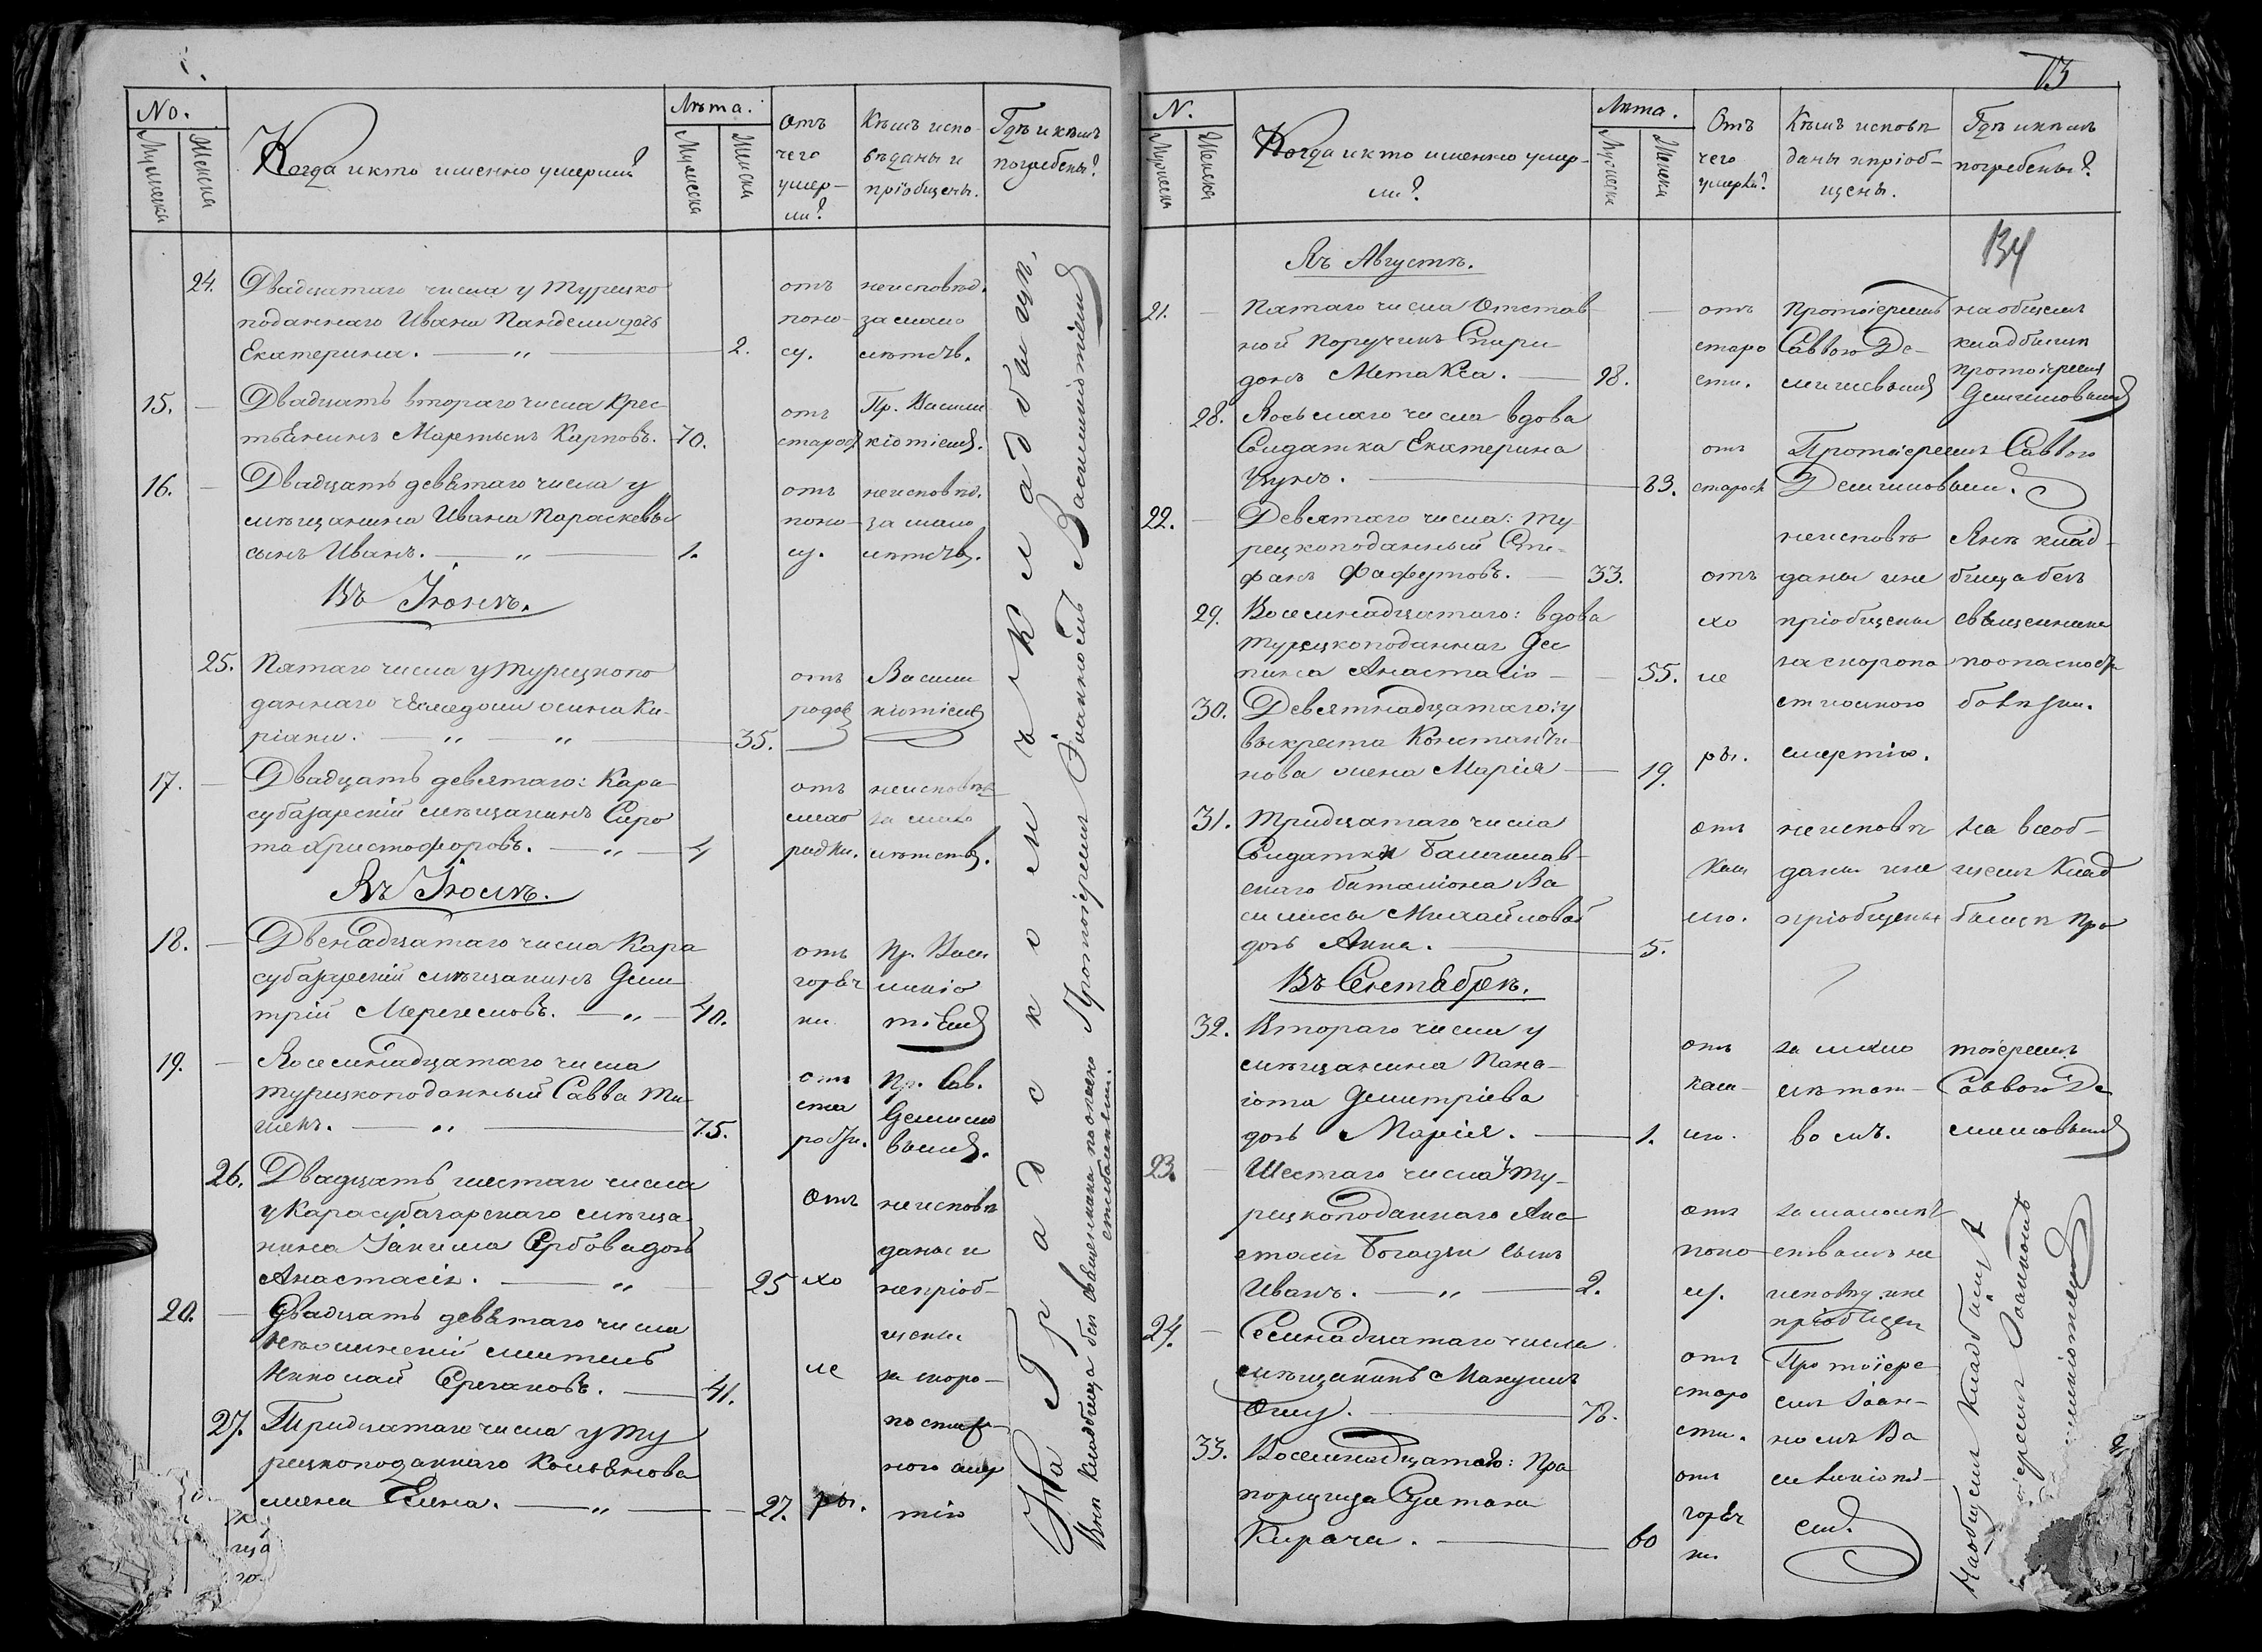 No.
Мужеска
Женска
Когда и кто именно умерший?
Лѣта.
Мужеска
Женска
Отъ
чего
умер-
ли?
Кѣмъ испо-
вѣданы и
пріобщены.
Гдѣ и кѣмъ
погребены?
24. Двадцатаго числа у турецко
подданнаго Ивана Пандели дочь
Екатерина. — „ — 2.
отъ
поно-
су.
неисповѣд.
за мало
лѣтств.
15. — Двадцать втораго числа крес-
тьянинъ Мартынъ Карповъ. 70.
отъ
старос
Пр. Васили
кіотіемъ.
16. — Двадцать девятаго числа у
мѣщанина Ивана Параскевы
сынъ Иванъ. — „ — 1.
отъ
поно-
су.
неисповѣд.
за мало
лѣтств.
Въ Іюнѣ.
25. Пятаго числа у турецкопо
даннаго жена Ки-
ріаки. — „ — „ — 35.
отъ
родов
Васили
кіотіемъ
17. — Двадцать девятаго: Кара-
субазарскій мѣщанинъ Сиро
та Христофоровъ. — „ — 4
отъ
лихо
радки.
неисповѣд
за мало
лѣтств.
Въ Іюлѣ.
18. — Двенадцатаго числа Кара
субазарскій мѣщанинъ Дими
трій — „ — 40.
отъ
горяч
ки.
Пр. Васи
ликіо
тіемъ
19. — Восемнадцатаго числа
турецкоподданный Савва Ти-
— „ — 75.
отъ
ста
рости.
Пр. Сав.
Демило
вымъ.
26. Двадцать шестаго числа
у Карасубазарскаго мѣща
нина Іакима Сербова дочь
Анастасія. — „ — 25
отъ
хо
ле
ры.
неисповѣ
даны и
непріоб-
щены
за скоро-
постиж-
ною смер
тію
20. — Двадцать девятаго числа
Нѣжинскій житель
Николай — 41.
27. Тридцатаго числа у ту
рецкоподаннаго
жена Елена. — „ — 27.
На Градскомъ Кладбищѣ,
Протоіереемъ Іоанномъ Василикіотіемъ
N.
Мужеска
Женска
Когда и кто именно умер-
ли?
Лѣта.
Мужеска
Женска
Отъ
чего
умерли?
Кѣмъ исповѣ
даны и пріоб-
щены.
Гдѣ и кѣмъ
погребены?
73
134
Въ Августѣ.
21. — Пятаго числа Отстав
ной Поручикъ Спири
донъ Метакса. — 98.
отъ
старо
сти.
Протоіереемъ
Саввою Де-
миловымъ
на общемъ
кладбищѣ
протоіереемъ
Демиловымъ
28. Восьмаго числа вдова
Солдатка Екатерина
— 83.
отъ
старост
Протоіереемъ Саввою
Демиловымъ.
22. — Девятаго числа: ту-
рецкоподанный Сте-
фанъ Фафутовъ. — 33.
29. Восемнадцатаго: вдова
турецкоподанная Дес
пина Анастасіо — 55.
30. Девятнадцатаго: у
выкреста Константи-
нова жена Марія — 19.
отъ
хо
ле
ры.
неисповѣ
даны и не
пріобщены
за скоропо
стижною
смертію.
Внѣ клад-
бища безъ
священника
по опасности
болѣзни.
31. Тридцатаго числа
Солдатки Балаклав-
скаго баталіона Ва
силиссы Михайловой
дочь Анна. — 5.
отъ
каш
лю.
неисповѣ
даны и не
пріобщены
на всеоб-
щемъ клад
бищѣ про
Въ Сентябрѣ.
32. Втораго числа у
мѣщанина Пана-
іота Димитріева
дочь Марія. — 1.
отъ
каш-
лю.
за мало
лѣтст-
вомъ.
тоіереемъ
Саввою Де
миловымъ
23. — Шестаго числа у ту-
рецкоподаннаго Ана
стасія Богаджи сынъ
Иванъ. — „ — 2.
отъ
поно-
су.
за малолѣт
ствомъ не
исповѣд. и не
пріобщен
24. — Семнадцатаго числа
мѣщанинъ
— 78.
отъ
старо
сти.
Протоіере
емъ Іоан-
номъ Ва
33. Восемнадцатаго: Пра
порщица Султана
Кирачи. — 60
отъ
горяч
ки.
силикіоті-
емъ.
На общемъ кладбищѣ
Протоіереемъ Іоанномъ